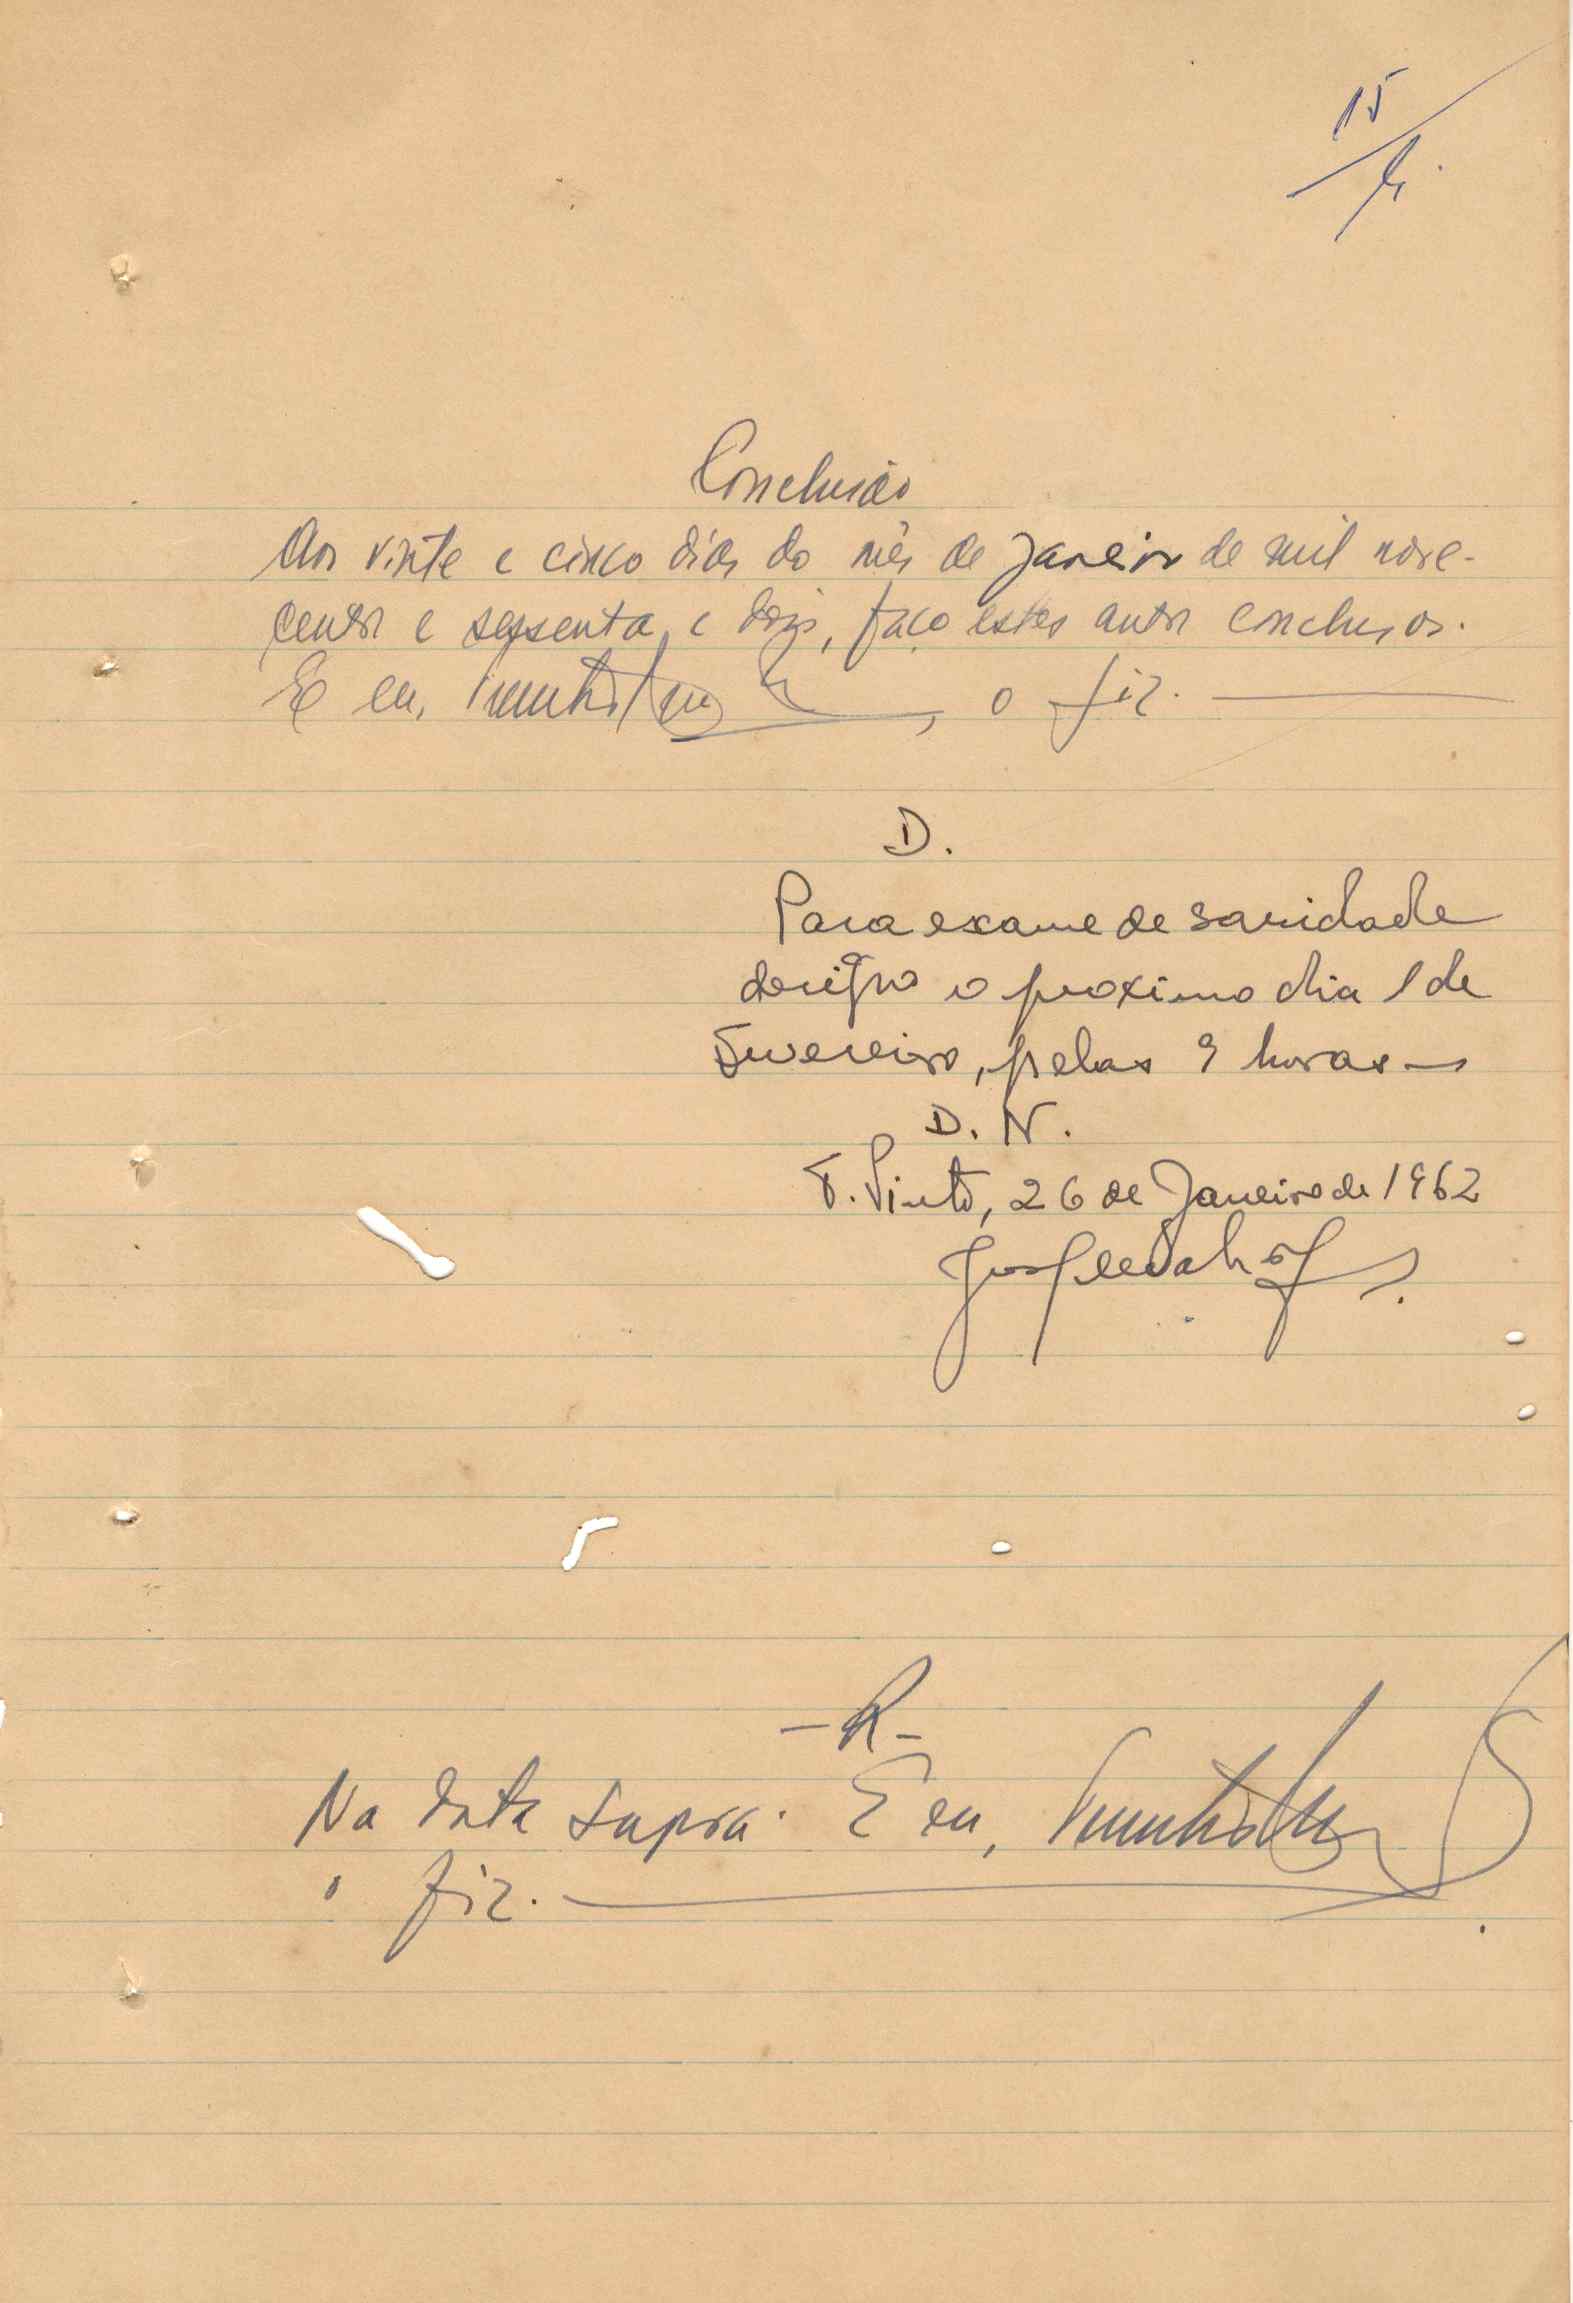 15
Conclusão
Aos vinte e cinco dias do mês de Janeiro de mil nove-
centos e sessenta e dois, faço estes autos conclusos.
E eu, , o fiz.
D.
Para exame de sanidade
designo o proximo dia 1 de
Fevereiro, pelas 9 horas
D. N.
F. Pinto, 26 de Janeiro de 1962
- R -
Na data supra. E eu,
o fiz.